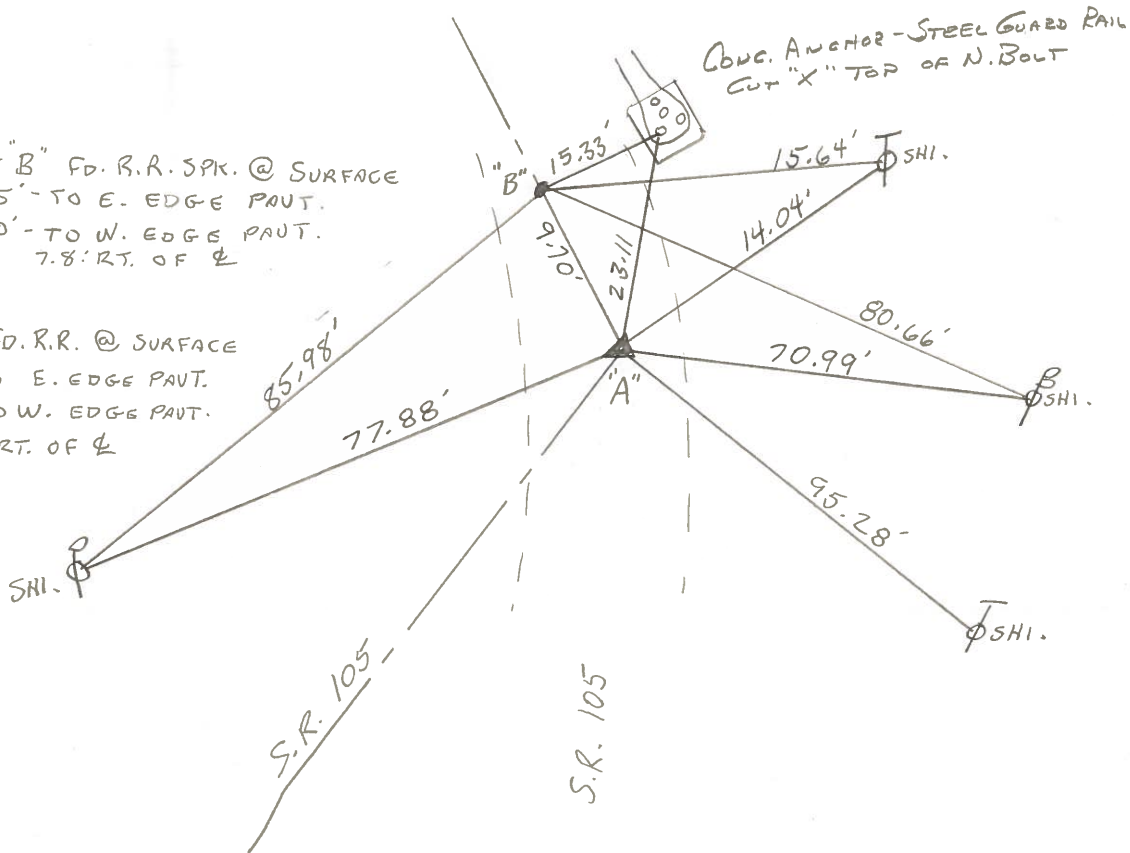 CONC. ANCHOR - STEEL GUARD RAIL
CUT "X" TOP OF N. BOLT
"B" FD. R.R. SPK. @ SURFACE
5' - TO E. EDGE PAVT.
0' - TO W. EDGE PAVT.
7.8' RT. OF ℄
D. R.R. @ SURFACE
E. EDGE PAVT.
W. EDGE PAVT.
RT. OF ℄
"B"
15.33'
15.64'
SHI.
14.04'
9.70'
23.11
80.66'
85.98'
70.99'
"A"
SHI.
77.88'
95.28'
SHI.
SHI.
S.R. 105
S.R. 105